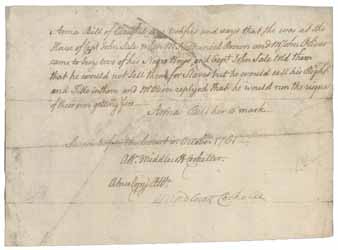 Anna Bill of lawful age testifies and says that she was at the
House of Capt John Sale when Mr Nathaniel Brown and Mr John Oliver
came to buy two of his Negro Boys, and Capt John Sale told them
that he would not sell them for Slaves but he would sell his Right
and Title in them and Mr Brown replyed that he would run the risque
of their ever getting free
Anna Bill her mark
Sworn before the Court in October 1761
Att
A true Copy Att